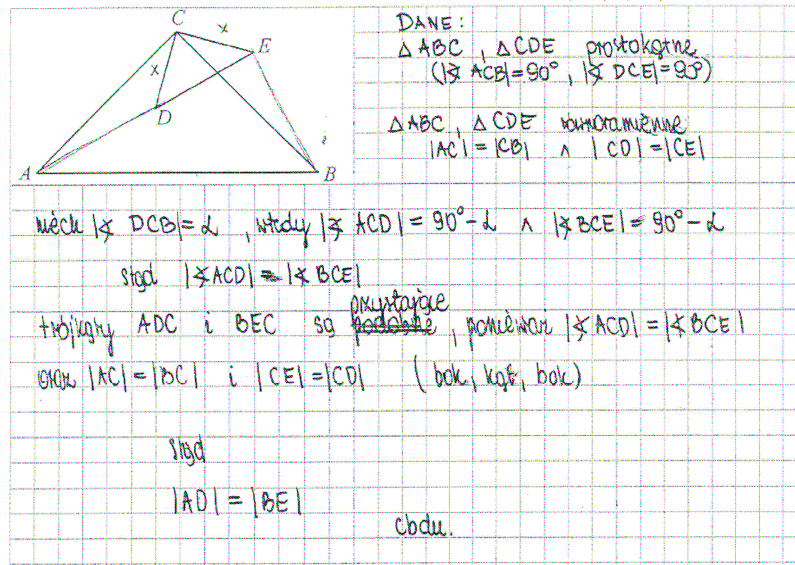 C
x
E
x
D
A
B
DANE:
△ ABC , △ CDE prostokątne
(|∢ ACB|=90°, |∢ DCE|=90°)
△ ABC, △ CDE równoramienne
|AC|=|CB| ∧ |CD|=|CE|
niech |∢ DCB|=α , wtedy |∢ ACD| = 90°-α ∧ |∢BCE| = 90°-α
stąd |∢ACD| = |∢BCE|
przystające
trójkąty ADC i BEC są podobne, ponieważ |∢ACD|=|∢BCE|
oraz |AC|=|BC| i |CE|=|CD| (bok, kąt, bok)
stąd
|AD| = |BE|
cbdu.